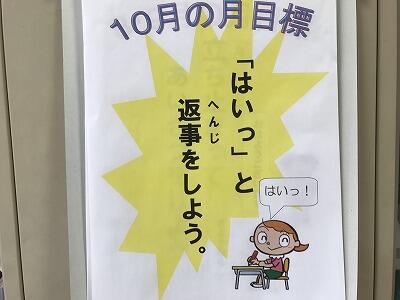 10月の月目標
「はいっ」と
へんじ
返事をしよう。
はいっ！